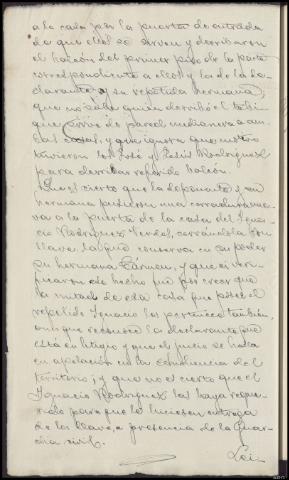 a la casa por la puerta de entrada
de que ellas se sirven y derribaron
el balcón del primer piso de la parte
correspondiente a ellas y la de la de-
clarante y su repetida hermana,
que no sabe quien derribó el tabi-
que de pared medianera a am-
bas casas, y que ignora que motivo
tuvieron los José y Jesús Rodríguez
para derribar referido balcón.
Que es cierto que la deponente y su
hermana pusieron una cerradura nue-
va a la puerta de la casa del Igna-
cio Rodríguez Verdes, cerrándola con
llave, la que conserva en su poder
su hermana Cármen, y que si veri-
ficaron ese hecho fué por creer que
la mitad de esa casa que posee el
repetido Ignacio les pertenece también,
aunque reconoce la declarante que
está en litigio y que el juicio se halla
en apelación en la Audiencia del
territorio; y que no es cierto que el
Ignacio Rodríguez las haya reque-
rido para que le hiciesen entrega
de las llaves, a presencia de la Guar-
dia civil.
Lei-